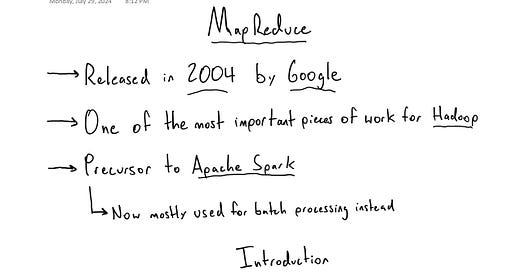 Monday, July 29, 2024 8:12 PM
MapReduce
→ Released in 2004 by Google
→ One of the most important pieces of work for Hadoop
→ Precursor to Apache Spark
↳ Now mostly used for batch processing instead
Introduction